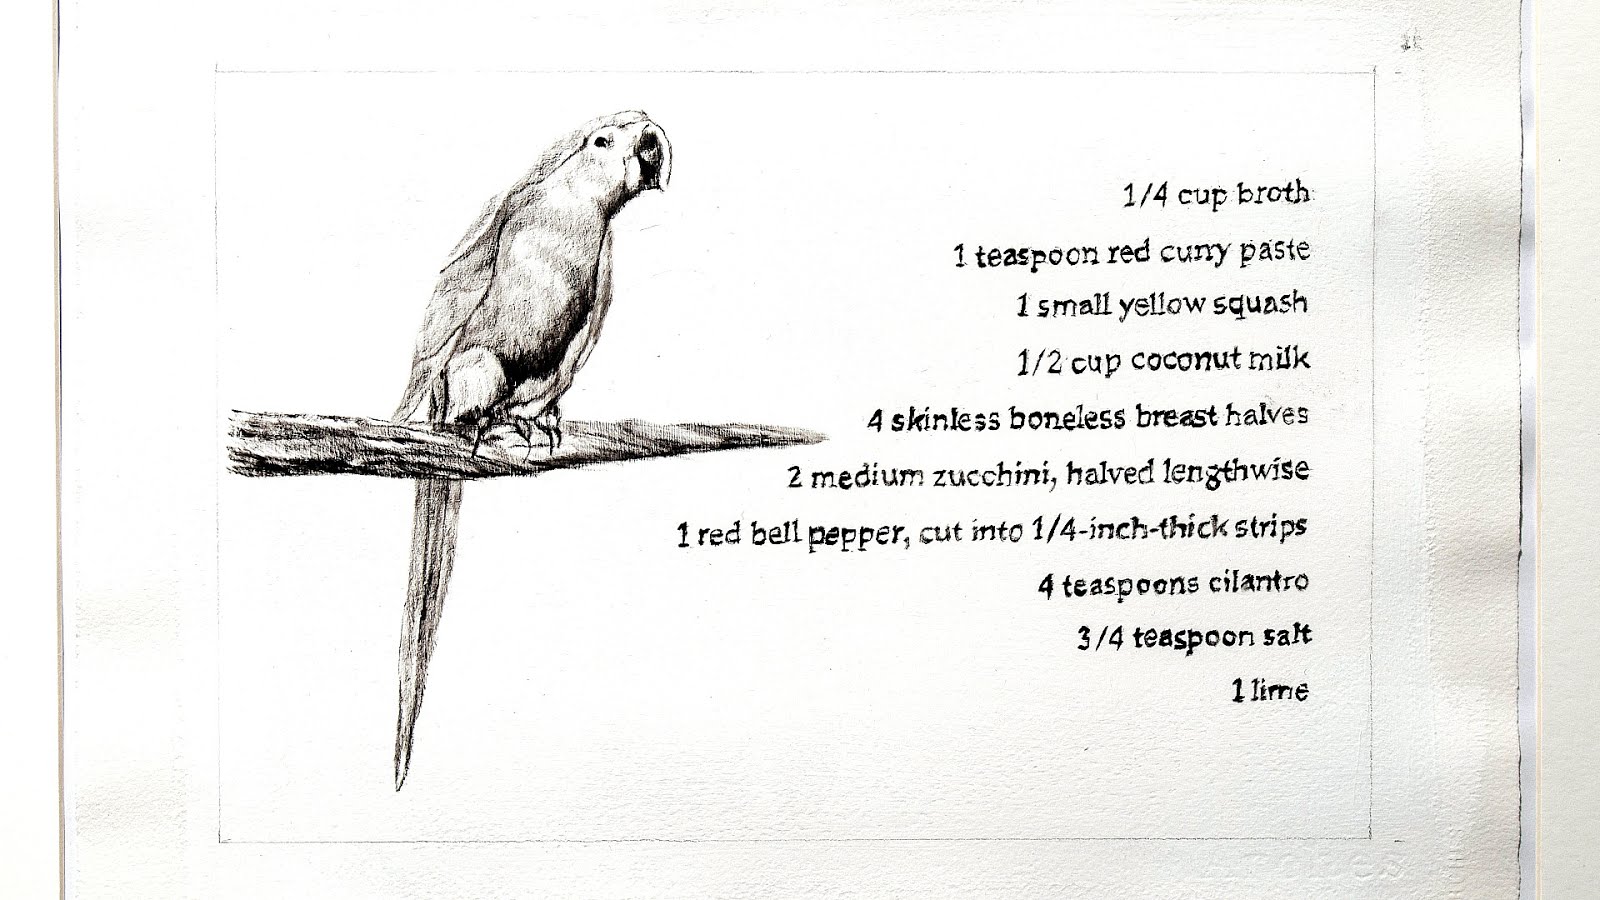 1/4 cup broth
1 teaspoon red curry paste
1 small yellow squash
1/2 cup coconut milk
4 skinless boneless breast halves
2 medium zucchini, halved lengthwise
1 red bell pepper, cut into 1/4-inch-thick strips
4 teaspoons cilantro
3/4 teaspoon salt
1 lime